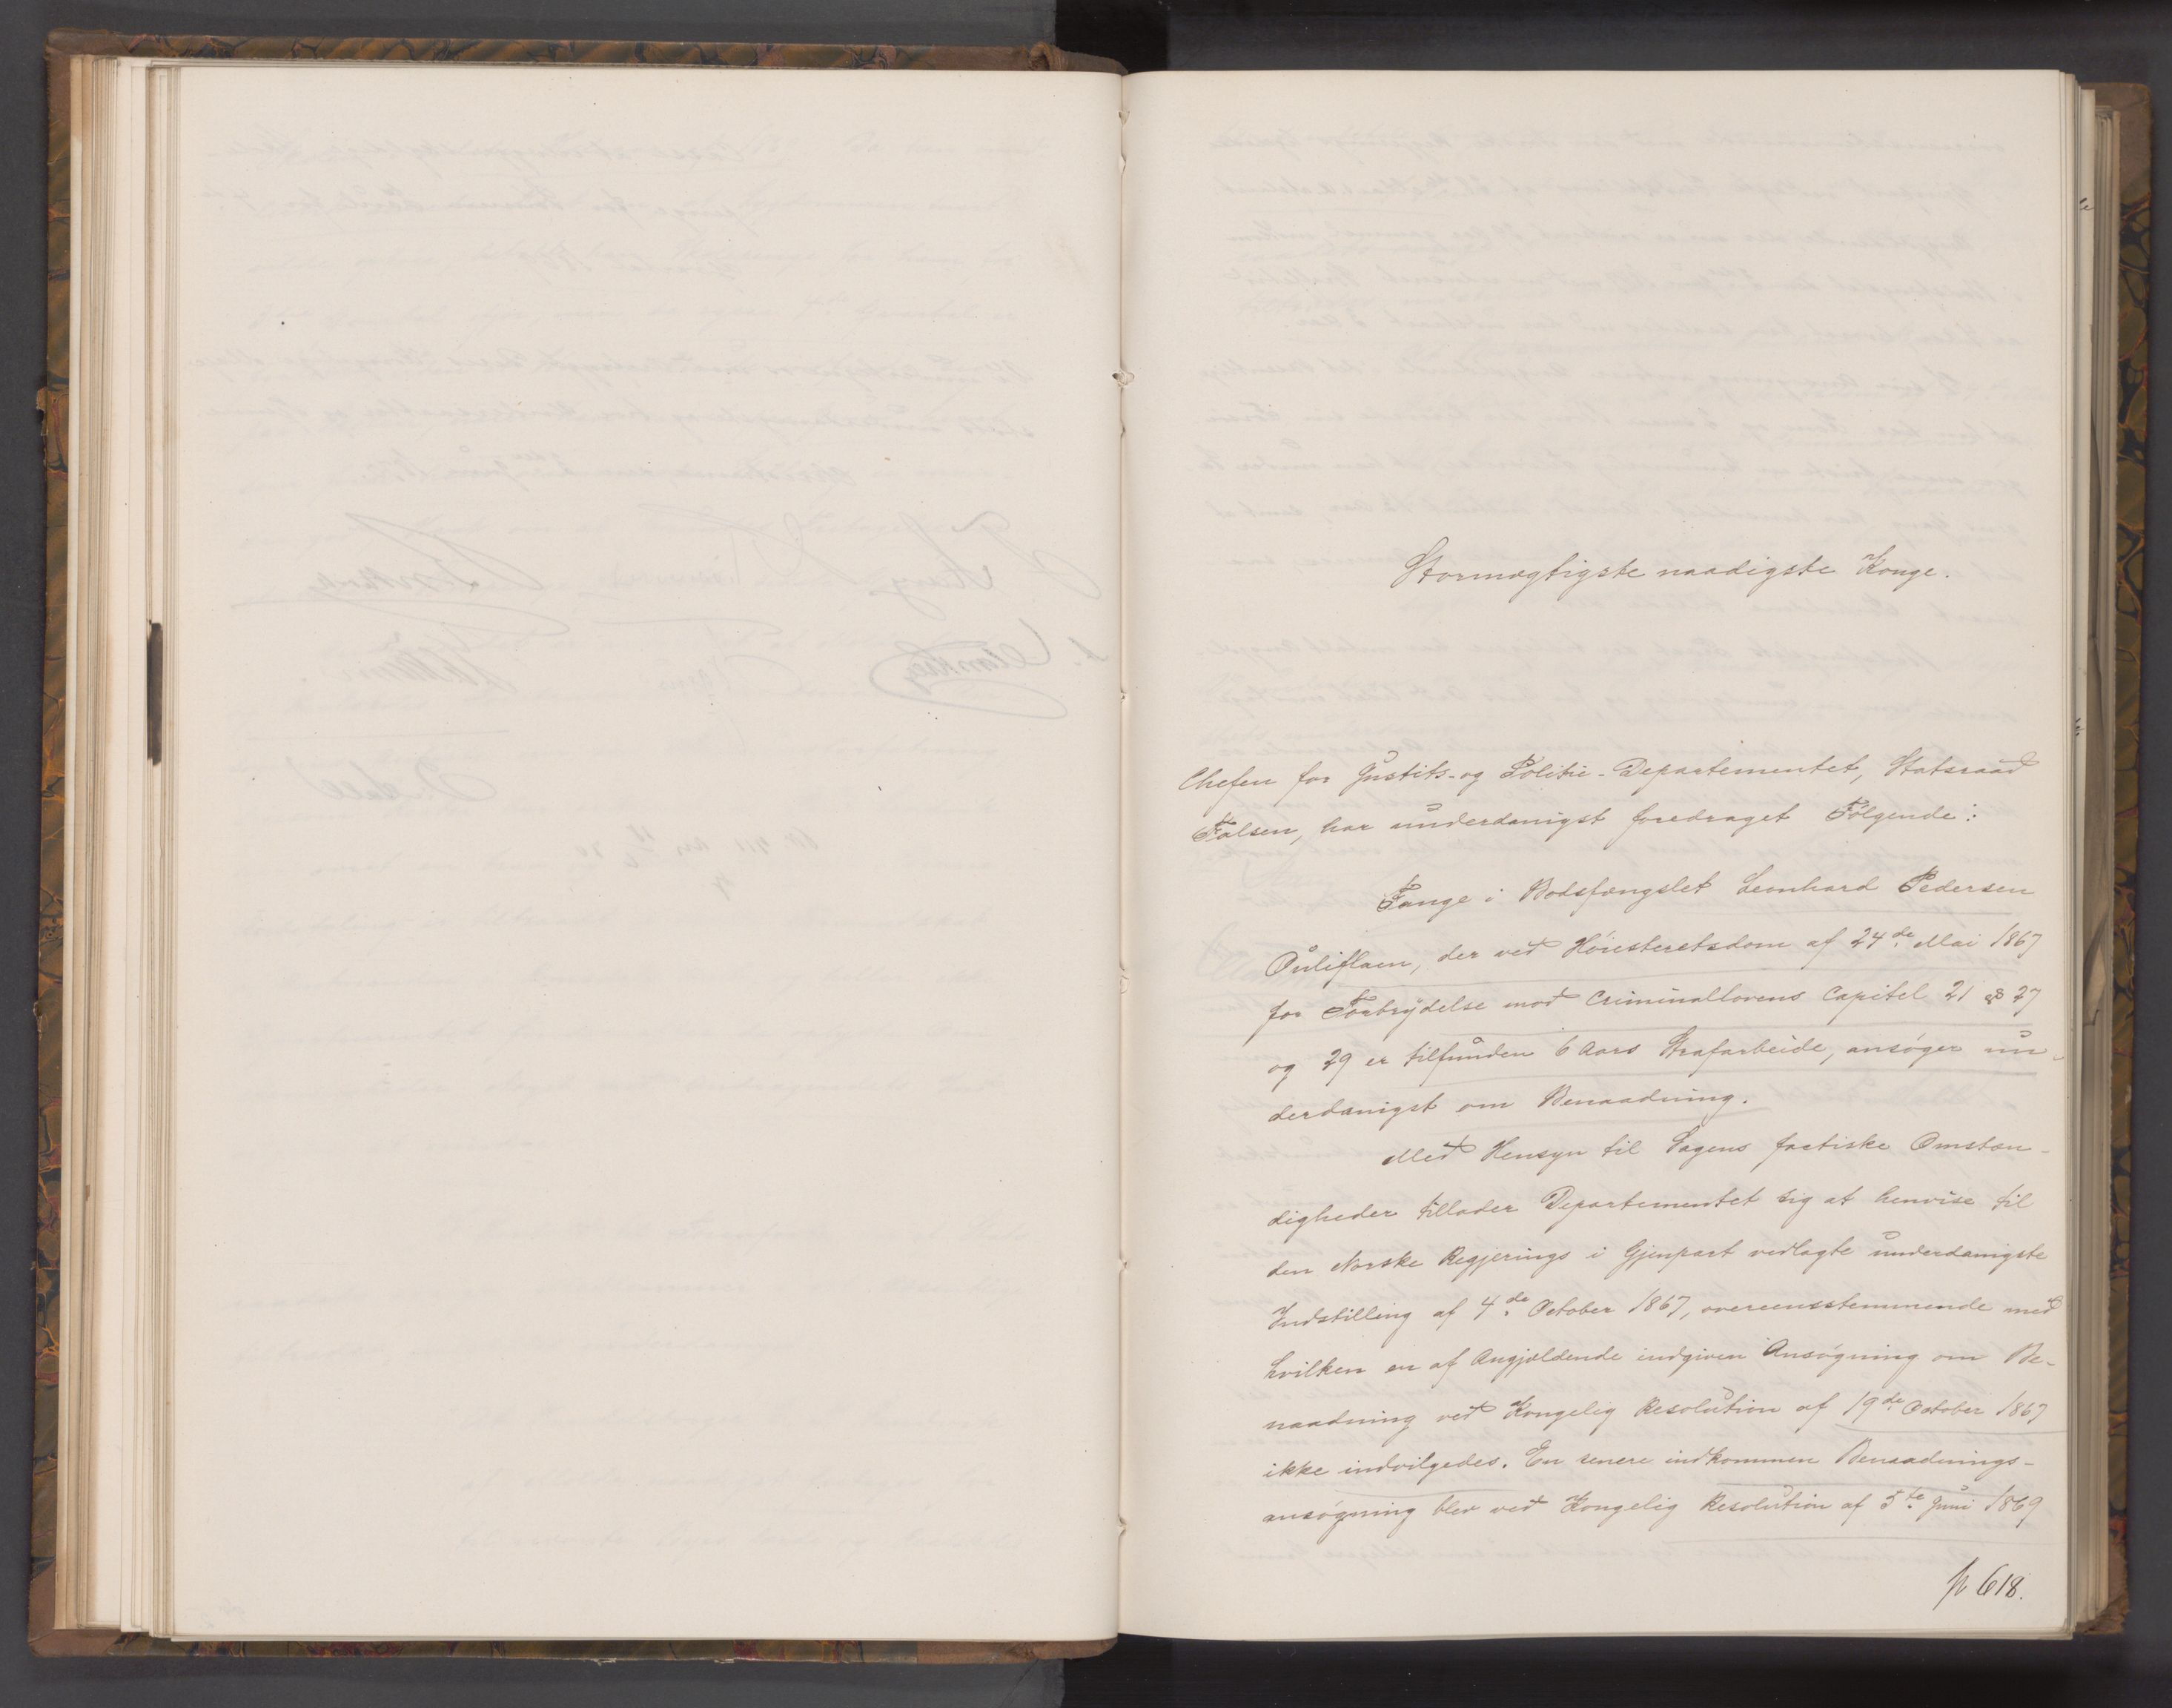 Stormægtigste naadigste Konge.
Chefen for Justits- og Politie-Departementet, Statsraad
Falsen, har underdanigst foredraget Følgende:
Fange i Bodsfængslet Leonhard Pedersen
der ved Høiesteretsdom af 24de Mai 1867
for Forbrydelse mod Criminallovens Capitel 21 27
og 29 er tilfunden 6 Aars Strafarbeide, ansøger un-
derdanigst om Benaadning.
Med Hensyn til Sagens factiske Omstæn-
digheder tillader Departementet sig at henvise til
den Norske Regjerings i Gjenpart vedlagte underdanigste
Indstilling af 4de October 1867, overeensstemmende med
hvilken en af Angjældende indgiven Ansøgning om Be-
naadning ved Kongelig Resolution af 19de October 1867
ikke indvilgedes. En senere indkommen Benaadnings-
ansøgning blev ved Kongelig Resolution af 5te Juni 1869
618.